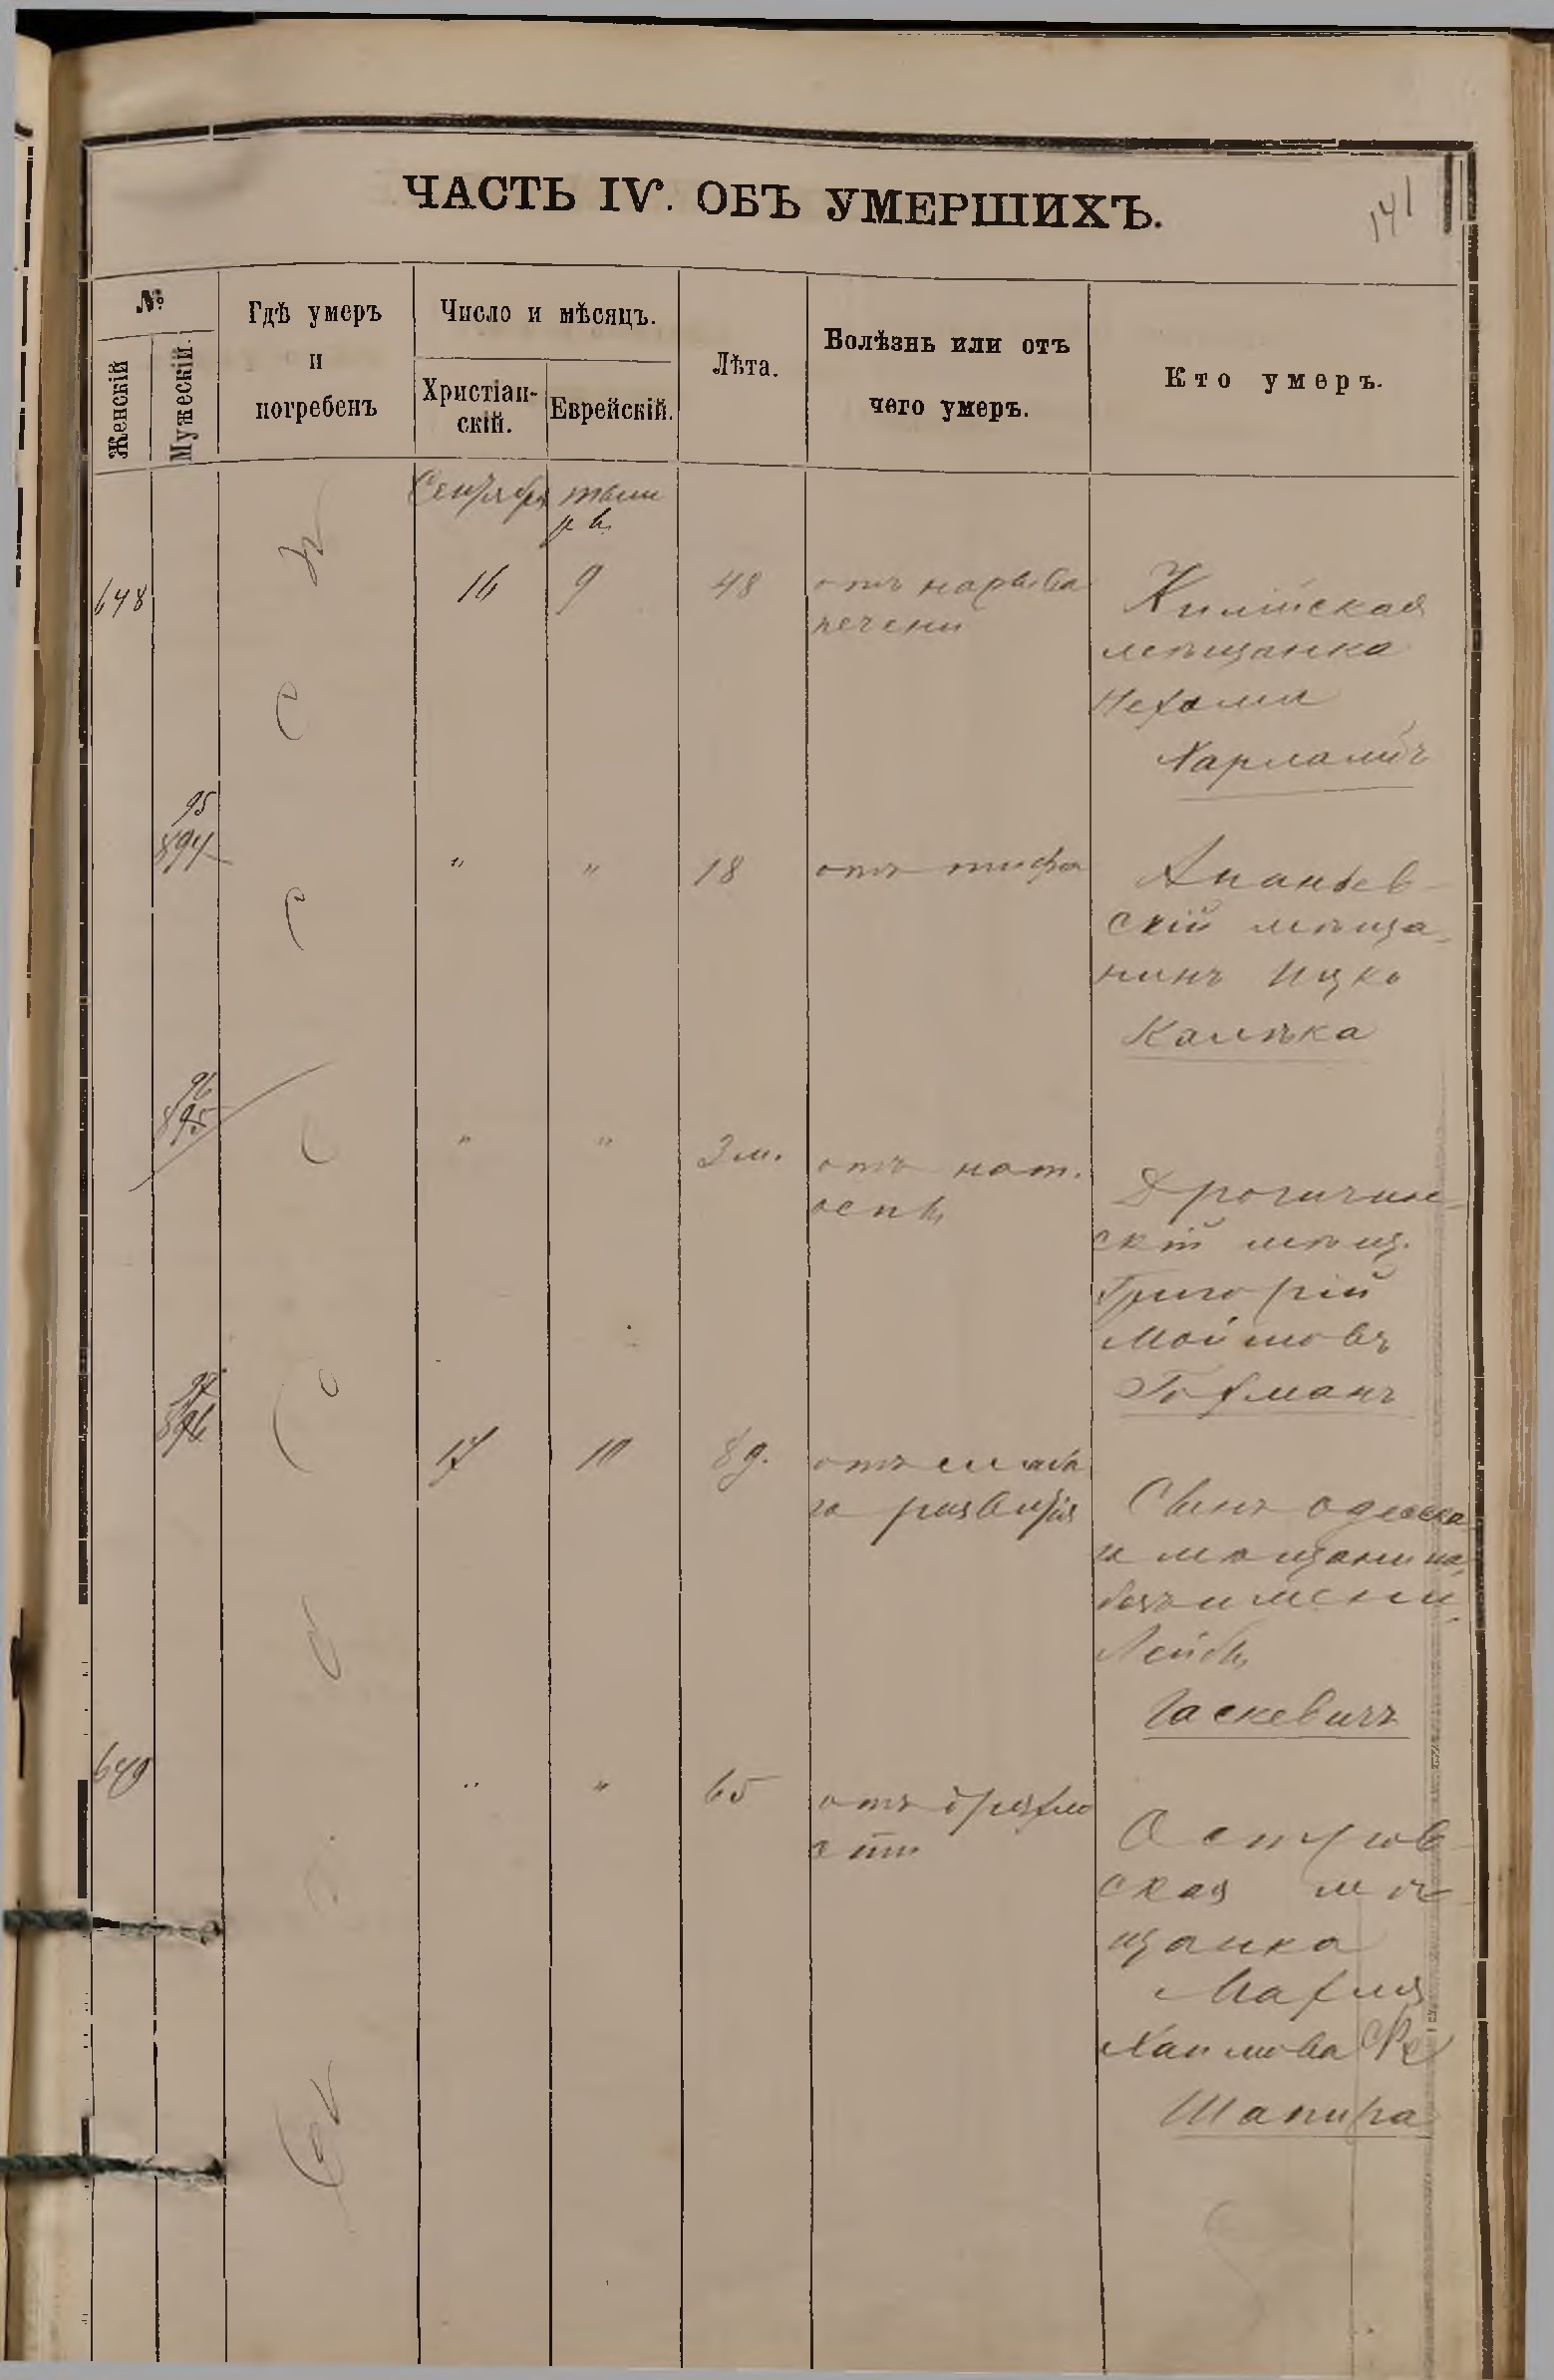 ЧАСТЬ IV. ОБЪ УМЕРШИХЪ.
141
№
Женскій
Мужескій.
Гдѣ умеръ
и
погребенъ
Число и мѣсяцъ.
Христіан-
скій.
Еврейскій.
Лѣта.
Болѣзнь или отъ
чего умеръ.
Кто умеръ.
Сентября тыш
ры
648 16 9 48 отъ нарыва
печени
Килійская
мѣщанка
Нехама
Харламъ
95
894 " " 18 отъ тифа
Ананьев
скій мѣща-
нинъ Ицко
Калѣка
96
895 " " 3 м. отъ нат.
оспы
Дрогичин-
скій мѣщ.
Григорій
Мошковъ
Гофманъ
97
896 17 10 8 д. отъ слаба
го развитія
Сынъ одесска
го мѣщанина
безъ имени
Лейбы
Гаскевичъ
649 " " 65 отъ дряхло
сти
Остров
ская мѣ
щанка
Махля
Хаимова
Шапира
Одесса